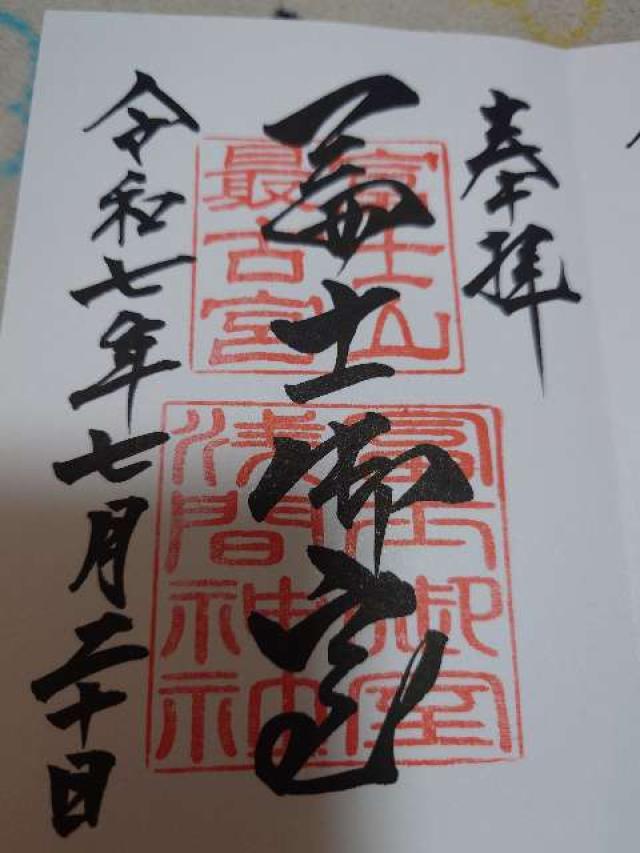 奉拝
冨士御室
令和七年七月二十日
富士山
最古宮
冨士御室
浅間神社